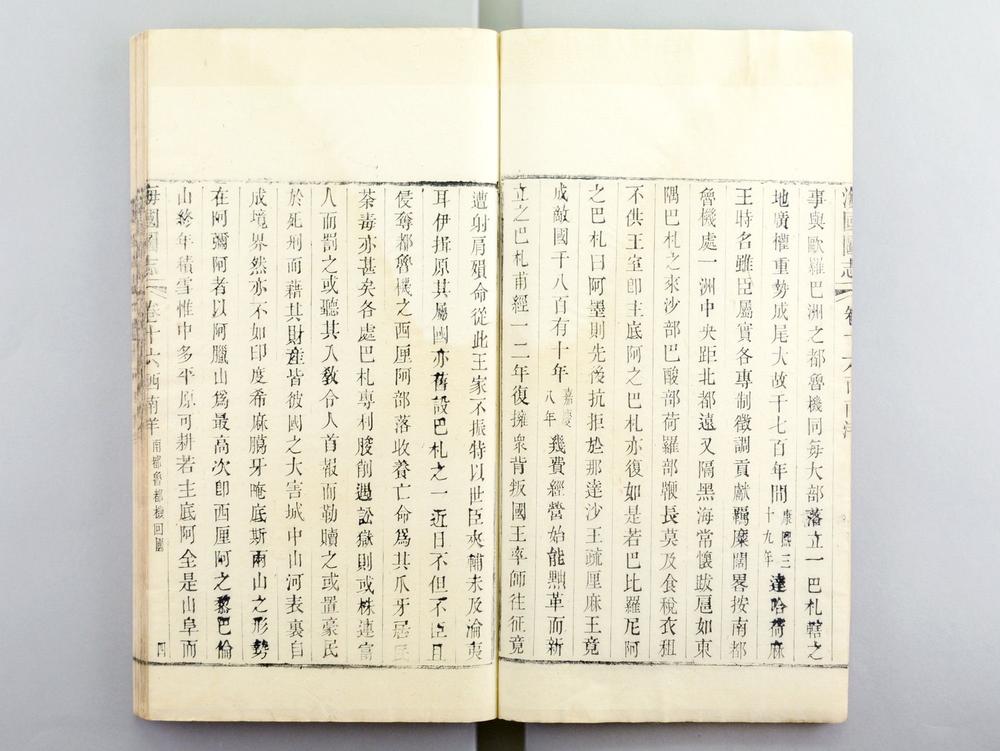 海國圖志
事與歐羅巴洲之都魯機同每大部落立一巴札轄之
地廣權重勢成尾大故千七百年間康熙三十九年達哈荷麻
王時名雖臣屬實各專制徵調貢獻羈縻闊畧按南都
魯機處一洲中央距北都遠又隔黑海常懷跋扈如東
隅巴札之來沙部巴酸部荷羅部鞭長莫及食稅衣租
不供王室卽主底阿之巴札亦復如是若巴比羅尼阿
之巴札曰阿墨則先後抗拒於那達沙王疏厘麻王竟
成敵國千八百有十年嘉慶八年幾費經營始能黜革而新
立之巴札甫經一二年復擁衆背叛國王率師往征竟
遭射肩殞命從此王家不振特以世臣夾輔未及淪夷
耳伊揖原其屬國亦舊設巴札之一近日不但不臣且
侵奪都魯機之西厘阿部落收養亡命爲其爪牙居民
荼毒亦甚矣各處巴札專利朘削遇訟獄則或株連富
人而罰之或聽其入敎令人首報而勒贖之或置豪民
於死刑而藉其財產皆彼國之大害城中山河表裏自
成境界然亦不如印度希麻臈牙唵底斯兩山之形勢
在阿彌阿者以阿臘山爲最高次卽西厘阿之黎巴倫
山終年積雪惟中多平原可耕若主底阿全是山阜而
海國圖志 卷十六西南洋 南都魯機回國 四